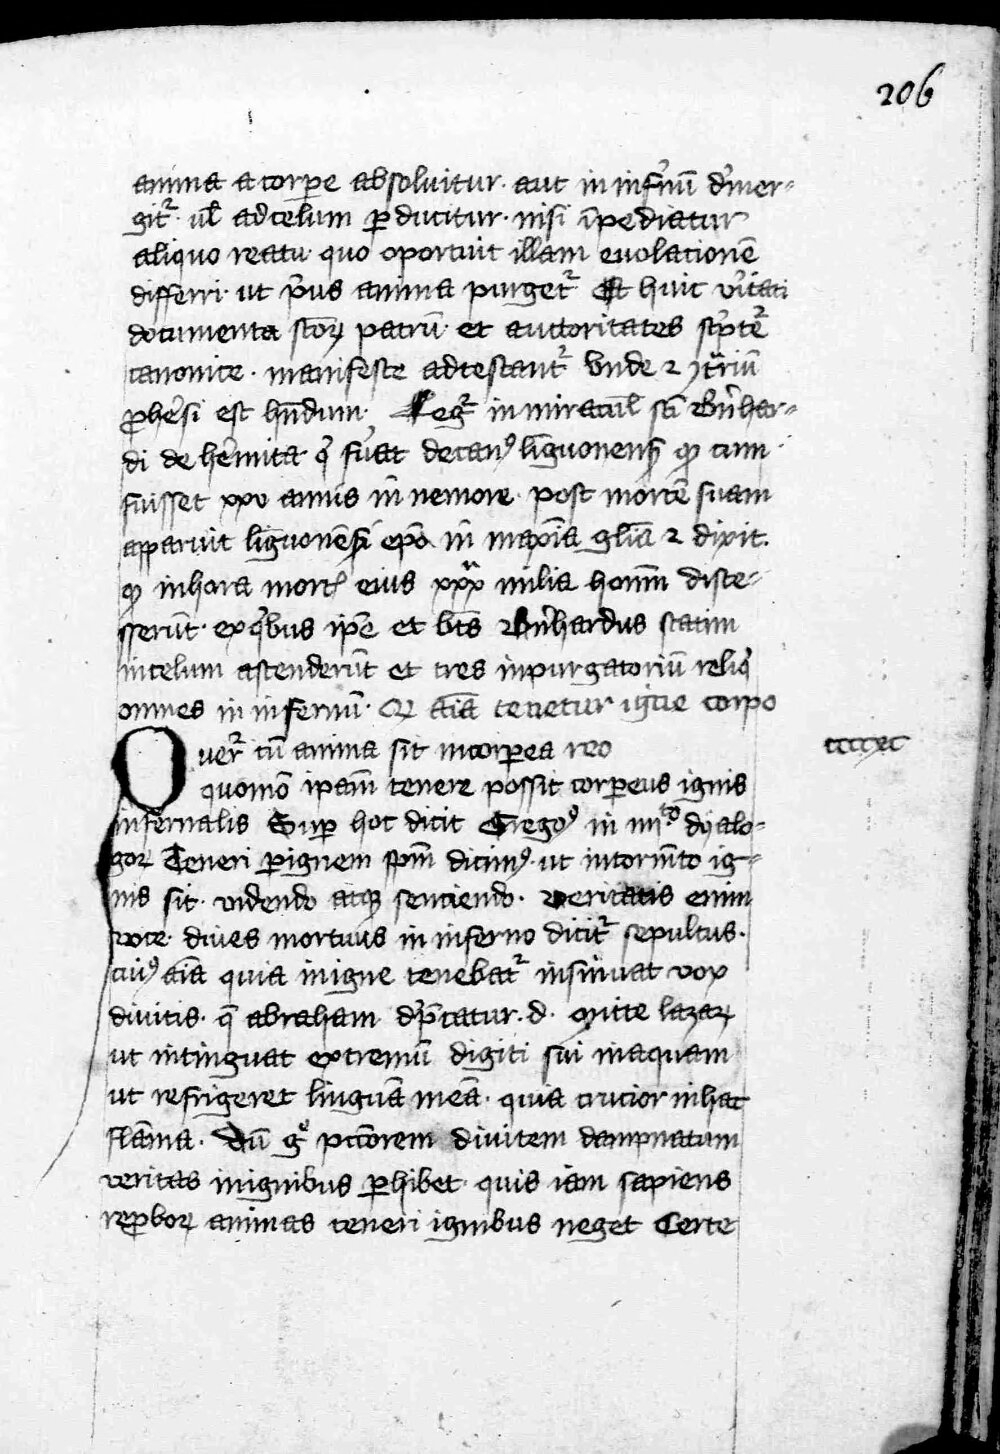 206
anima a corpe absoluitur. aut in infnū dmer-
git᷑. ul̄ ad celum p ducitur. nisi īpediatur
aliquo reatu quo oportuit illam euolationē
differri. ut p̄us anima purget᷑ Et huic ūitati
documenta sc̄oꝝ patrū. et auctoritates sc̄pte᷑
canonice. manifeste adtestant᷑ Vnde ⁊ ↄt̄riū
p̄hesi est hn̄dum. Leg᷑ in miracul̄ sc̄i B̄nhar-
di de he̅mita q̇ fūat decanꝯ linguonens̄ qꝫ cum
fuisset xxv annis in nemore. post mortē suam
apparuit linguonēsi ep̄o in max̄ia gl̄ia ⁊ dixit.
qꝫ in hora mort̄ eius xxx milia hom̄ disce-
sserūt. ex qͥbus ip̄e et bt̄s B̄nhardus statim
in celum ascenderūt et tres in purgatoriū reliq̇
omnes in infernū. Qꝫ aīa tenetur igne corpo
Ouer᷑ cū anima sit incorpea reo
quomō ip̄am tenere possit corpeus ignis
infernalis Sup hoc dicit Gregoꝯ in iiii.ᵗᵒ dyalo-
goꝝ Teneri p ignem sp̄m dicimꝯ. ut in torm̄to ig-
nis sit. uidendo atqꝫ senciendo. veritatis enim
voce. diues mortuus in inferno dicit᷑ sepultus.
cuiꝯ aīa quia in igne tenebat᷑ insinuat vox
diuitis. q̄ abraham dp̄catur. d. Mitte lazaꝝ
ut intinguat extremū digiti sui in aquam
ut refrigeret linguā meā. quia crucior in hac
flāma. Dū gͦ pcc̄orem diuitem dampnatum
veritas in ignibus phibet. quis iam sapiens
reproboꝝ animas teneri ignibus neget Certe